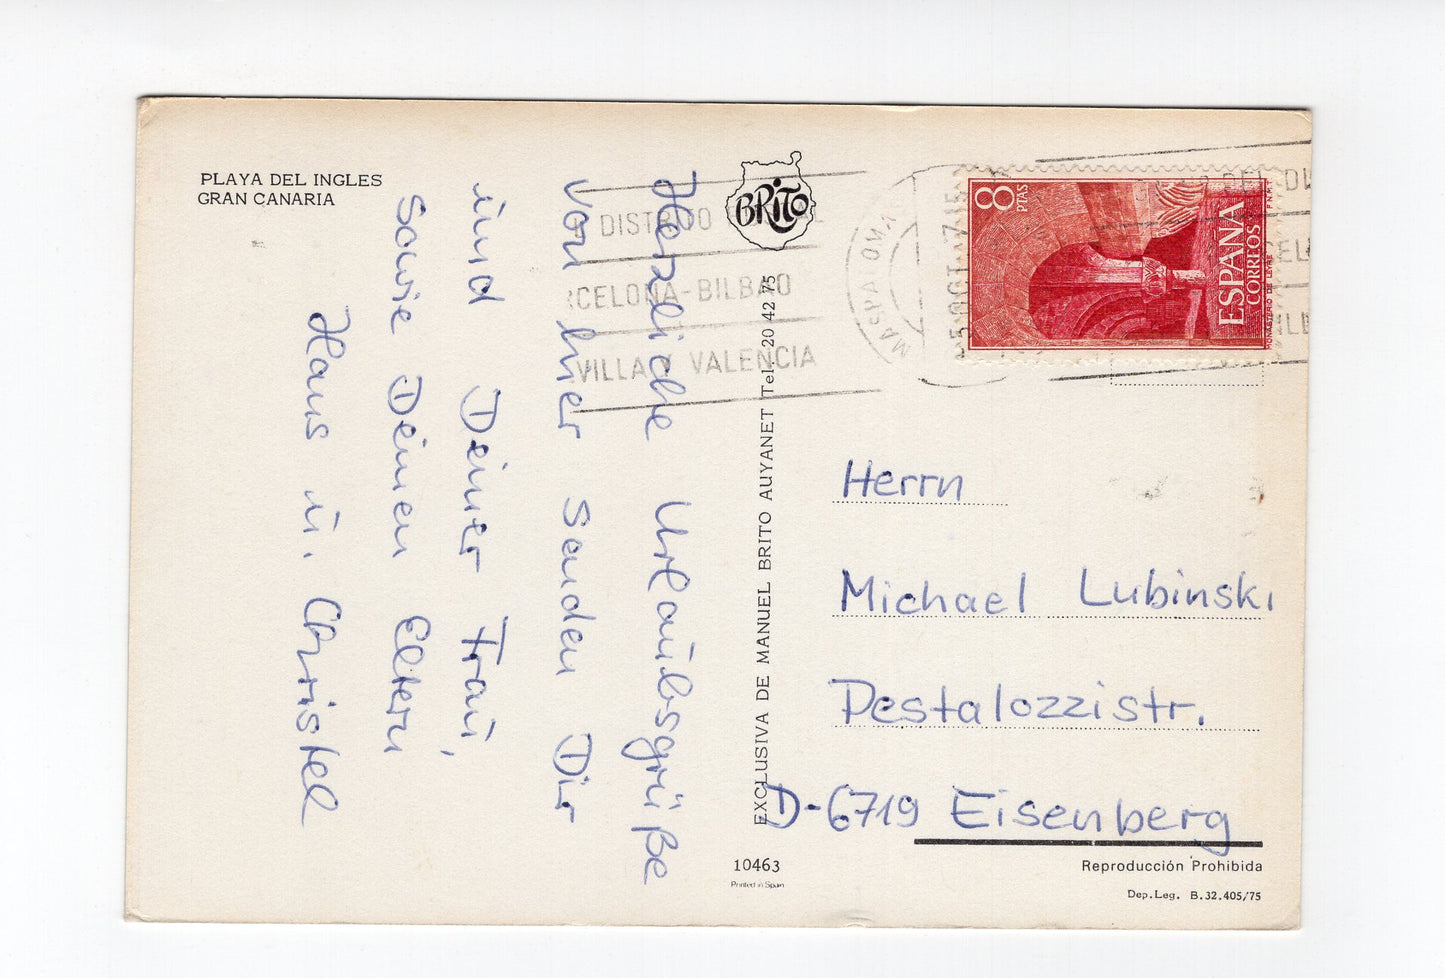 PLAYA DEL INGLES
GRAN CANARIA
BRITO
Herzliche Urlaubsgrüße
von hier senden Dir
und Deiner Frau,
sowie Deinen Eltern
Hans u. Christel
DISTRITO
RCELONA-BILBAO
VILLA Y VALENCIA
MASPALOMA
5 OCT 75
8 PTAS
ESPAÑA
CORREOS
MONASTERIO DE LEYRE
F.N.M.T.
EXCLUSIVA DE MANUEL BRITO AUYANET Tel. 20 42 75
Herrn
Michael Lubinski
Pestalozzistr.
D-6719 Eisenberg
10463
Printed in Spain
Reproducción Prohibida
Dep. Leg. B. 32.405/75